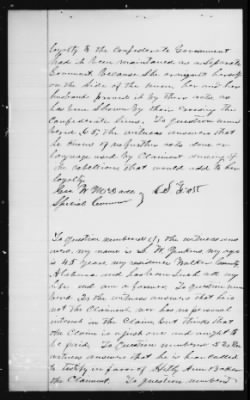 loyalty to the Confederate Government
had it been maintained as a separate
Goverment. Because she arrayed herself
on the side of the union, her and her
husband proved it by there acts as
has been shown by there crossing the
Confederate lines. To question num-
bered 65, the witness answers that
he knows of no further acts done or
language used by Claimant during
the rebellion that would add to her
loyalty.
Special Commr
To question numbered 1, the witness ans-
wers, my name is my age
is 45 years my residence Walker County
Alabama and has been such all my
life, and am a farmer. To question num-
bered the witness answers that he is
not the Claimant, nor has no personal
interest in the Claim but thinks that
the Claim is a just one and ought to
be paid. To Question numbered 5 the
witness answers that he is here called
to testify in favor of Ann
the Claimant. To question numbered